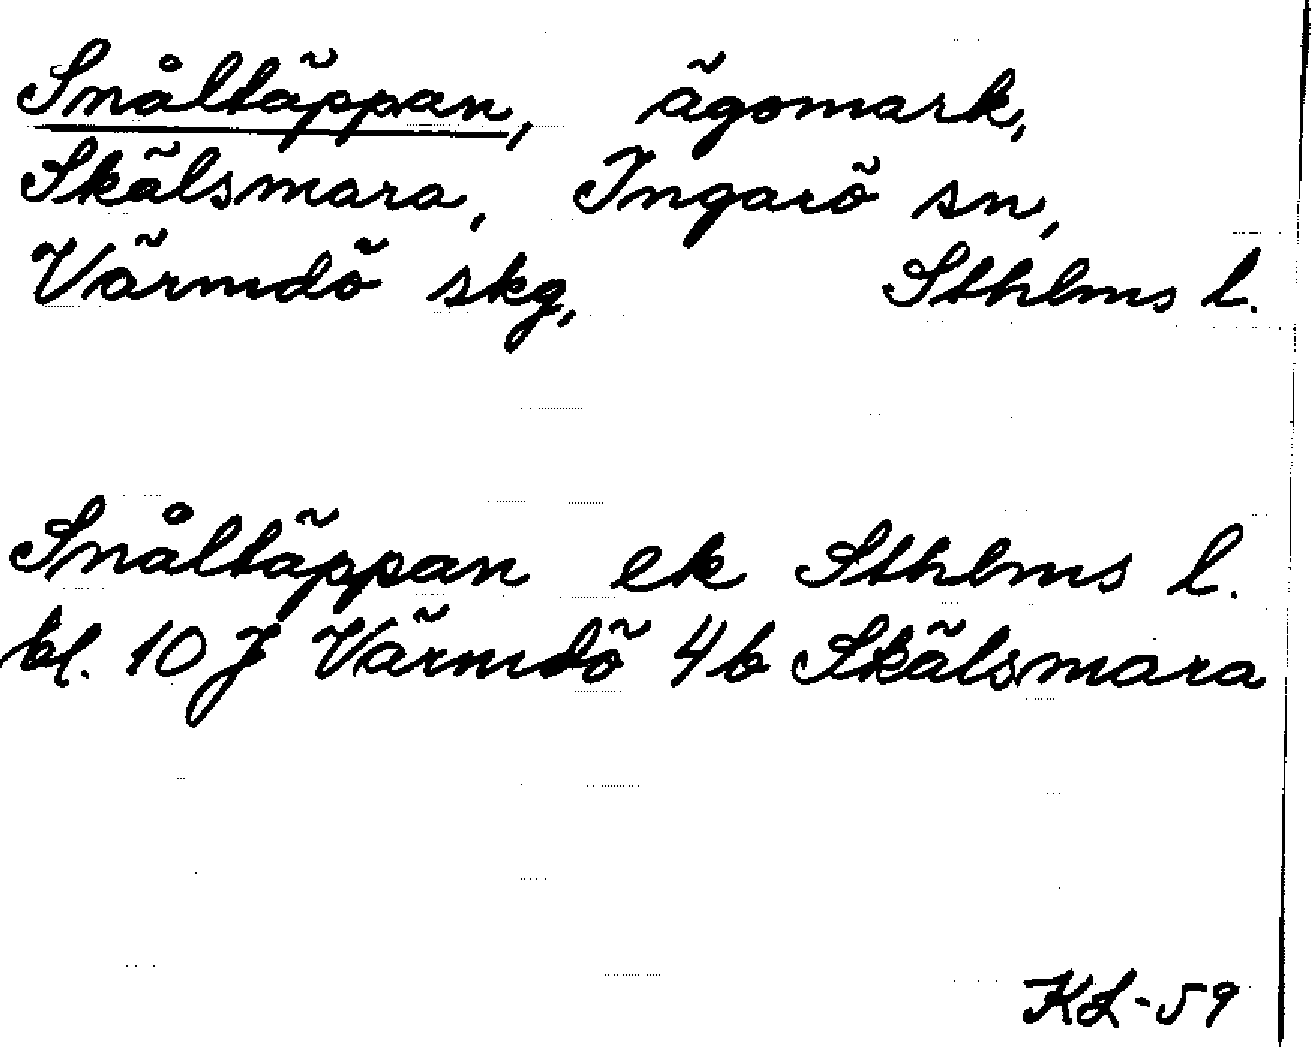 Snåltäppan, ägomark,
Skälsmara, Ingarö sn,
Värmdö skg, Sthlms l.
Snåltäppan ek Sthlms l.
bl. 10 J Värmdö 4b Skälsmara
KL-59